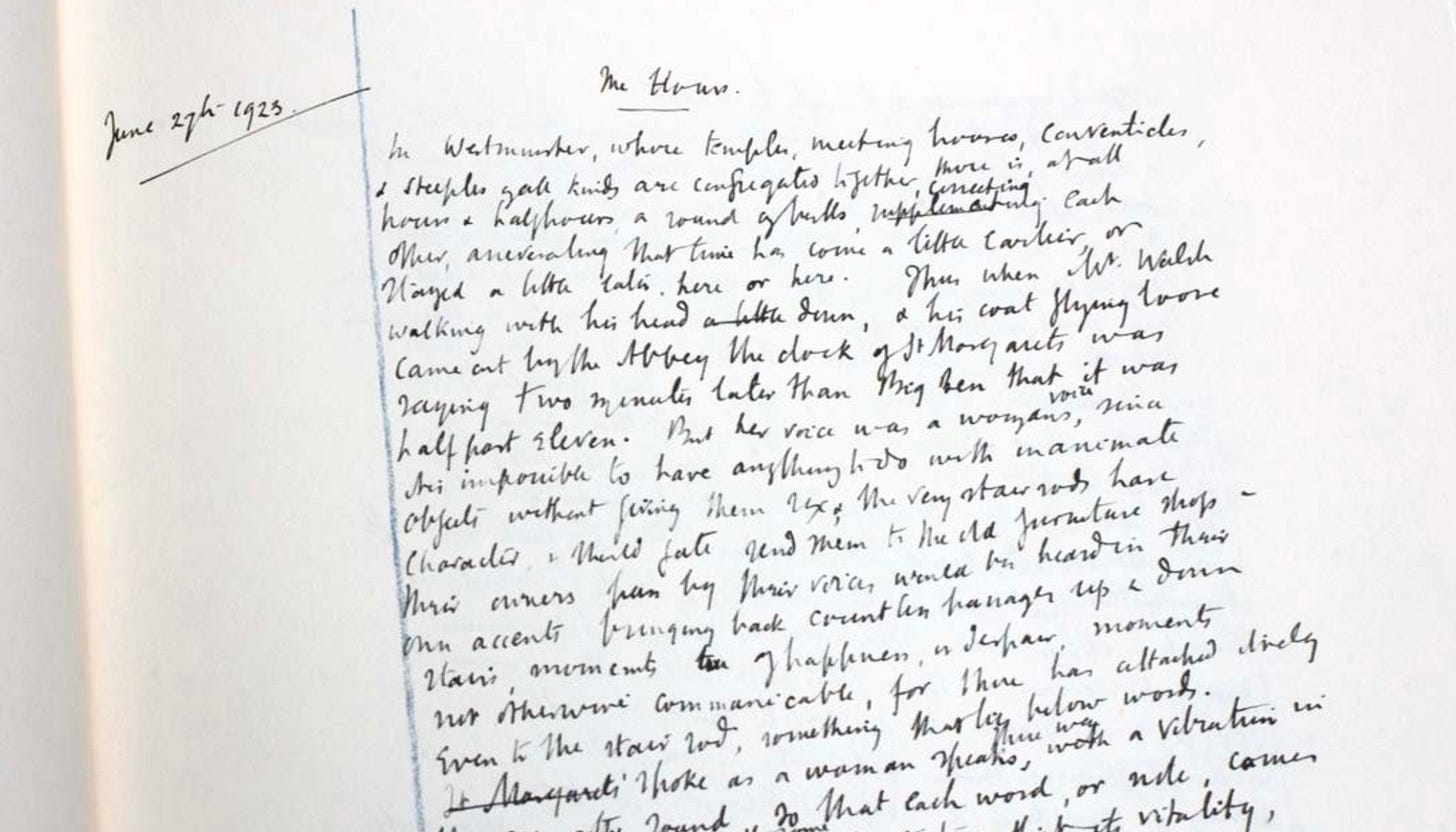 The Hours.
June 27th 1923.
In Westminster, where temples, meeting houses, conventicles,
& steeples of all kinds are congregated together, there is, at all
hours & halfhours, a round of bells, correcting
supplementing each
other, asseverating that time has come a little earlier, or
stayed a little later, here or here. Thus when Mr. Walsh
walking with his head a little down, & his coat flying loose
came out by the Abbey the clock of St Margarets was
saying two minutes later than Big Ben that it was
half past eleven. But her voice was a womans, voice
since
it is impossible to have anything to do with inanimate
objects without giving them sex, & the very stair rods have
character, & should fate send them to the old furniture shops -
their owners pass by their voices would be heard in their
own accents bringing back countless passages up & down
stairs, moments of happiness, or despair, moments
not otherwise communicable, for there has attached
Even to the stair rod, something that lies below words.
St Margarets' spoke as a woman speaks, there was
with a vibration in
sound, so that each word, or note, comes
vitality,